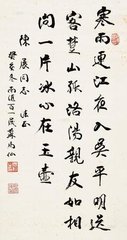 寒雨連江夜入吳平明送
客楚山孤洛陽親友如相
問一片冰心在玉壺
陳展同志 正
冬雨百一叟蘇局仙